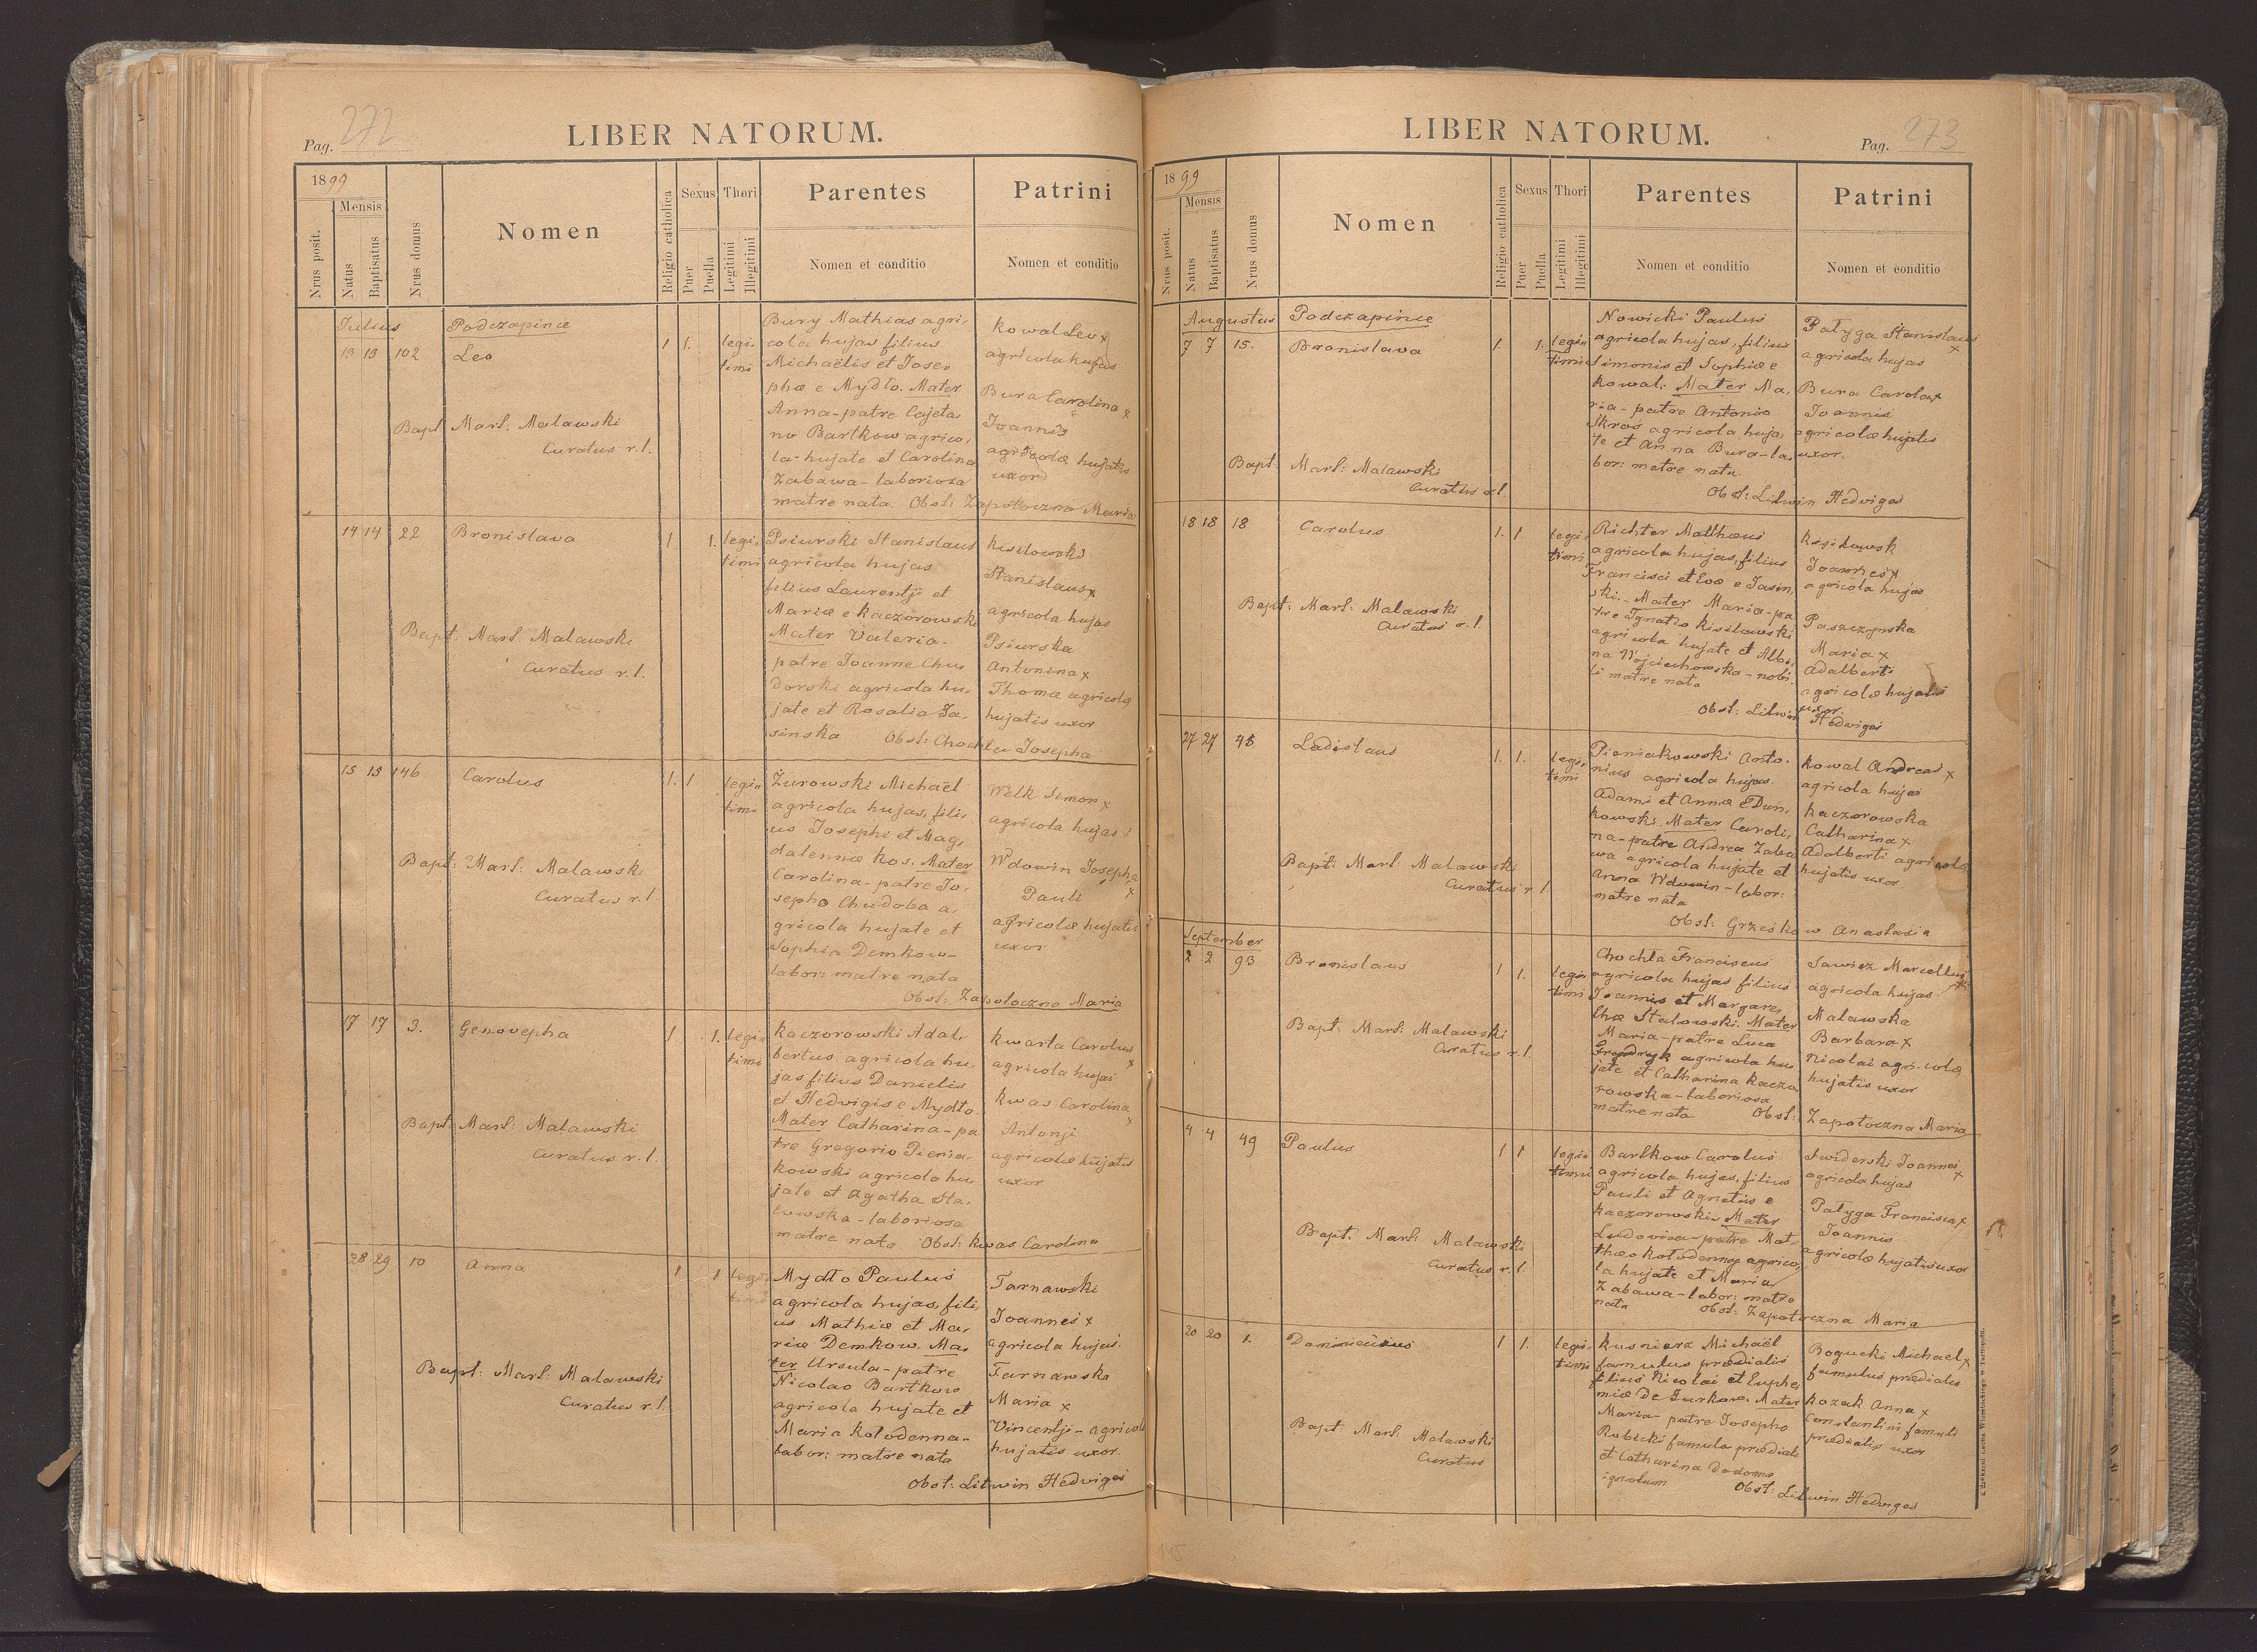 Pag. 272
LIBER NATORUM.
1899
Mensis
Nrus posit.
Natus
Baptisatus
Nrus domus
Nomen
Religio catholica
Sexus
Puer
Puella
Thori
Legitimi
Illegitimi
Parentes
Nomen et conditio
Patrini
Nomen et conditio
Julius
Podczapince
13 13 102
Leo
1 1.
legi-
timi
Bury Mathias agri-
cola hujas filius
Michaëlis et Jose-
phæ e Mydło. Mater
Anna-patre Cajeta
no Bartkow agrico-
la-hujate et Carolina
Zabawa-laboriosa
matre nata. Obst: Zapotoczna Maria
Kowal Leo x
agricola hujas
Bura Carolina x
Joannis
agricolæ hujatis
uxor
Bapt Marl: Malawski
Curatus r. l.
14 14 22
Bronislava
1. 1.
legi-
timi
Psiurski Stanislaus
agricola hujas
filius Laurentji et
Mariæ e Kaczorowski
Mater Valeria-
patre Joanne Chu
dorski agricola hu-
jate et Rosalia Ja-
sinska Obst: Chochla Josepha
Kisilowski
Stanislaus x
agricola hujas
Psiurska
Antonina x
Thomæ agricolæ
hujatis uxor
Bapt: Marl: Malawski
Curatus r. l.
15 15 146
Carolus
1. 1
legi-
timi
Żurowski Michaël
agricola hujas, fili-
us Josephi et Mag-
dalennæ Kos. Mater
Carolina-patre Jo-
sepho Chudoba a-
gricola hujate et
Sophia Demkow-
labor: matre nata
Obst: Zapotoczna Maria
Wilk Simon x
agricola hujas
Wdowin Josepha x
Pauli
agricolæ hujatis
uxor
Bapt: Marl: Malawski
Curatus r. l.
17 17 3.
Genovepha
1 1.
legi-
timi
Kaczorowski Adal-
bertus agricola hu-
jas filius Danielis
et Hedvigis e Mydło.
Mater Catharina-pa
tre Gregorio Pienia-
kowski agricola hu-
jate et Agatha Sta-
lowska-laboriosa
matre nata Obst: Kwas Carolina
Kwarta Carolus x
agricola hujas
Kwas Carolina x
Antonji
agricolæ hujatis
uxor
Bapt: Marl: Malawski
Curatus r. l.
28 29 10
Anna
1 1
legi-
timi
Mydło Paulus
agricola hujas, fili-
us Mathiæ et Ma-
riæ Demkow. Ma-
ter Ursula-patre
Nicolao Bartkow
agricola hujate et
Maria Kołodenna-
labor: matre nata
Obst: Litwin Hedviges
Tarnawski
Joannes x
agricola hujas.
Tarnawska
Maria x
Vincentji-agricolæ
hujatis uxor.
Bapt: Marl: Malawski
Curatus r. l.
LIBER NATORUM.
Pag. 273
1899
Mensis
Nrus posit.
Natus
Baptisatus
Nrus domus
Nomen
Religio catholica
Sexus
Puer
Puella
Thori
Legitimi
Illegitimi
Parentes
Nomen et conditio
Patrini
Nomen et conditio
Augustus
Podczapince
7 7 15.
Bronislava
1. 1.
legi-
timi
Nowicki Paulus
agricola hujas, filius
Simonis et Sophiæ e
Kowal. Mater Ma-
ria-patre Antonio
Skros agricola huja-
te et Anna Bura-la-
bor: matre nata
Obst: Litwin Hedviges
Pałyga Stanislaus x
agricola hujas
Bura Carola x
Joannis
agricolæ hujatis
uxor.
Bapt: Marl: Malawski
Curatus r. l.
18 18 18
Carolus
1. 1
legi-
timi
Richter Mathæus
agricola hujas, filius
Francisci et Evæ e Jasin
ski.-Mater Maria-pa
tre Ignatio Kisilowski
agricola hujate et Albi-
na Wojciechowska-nobi-
li matre nata
Obst: Litwin Hedviges
Kisilowsk
Joannes x
agricola hujas
Paszczynska
Maria x
Adalberti
agricolæ hujatis
uxor.
Bapt: Marl: Malawski
Curatus r. l.
27 27 45
Ladislaus
1. 1.
legi-
timi
Pieniakowski Anto-
nius agricola hujas.
Adami et Annæ e Dun-
kowski. Mater Caroli-
na-patre Andrea Zaba
wa agricola hujate et
Anna Wdowin-labor:
matre nata
Obst: Grzeskow Anastasia
Kowal Andreas x
agricola hujas
Kaczorowska
Catharina x
Adalberti agricolæ
hujatis uxor
Bapt: Marl: Malawski
Curatus r. l.
September
2 2 93
Bronislaus
1 1.
legi-
timi
Chochla Franciscus
agricola hujas filius
Joannis et Margare-
thæ Stalowski. Mater
Maria-patre Luca
agricola hu
jate et Catharina Kaczo
rowska-laboriosa
matre nata Obst: Zapotoczna Maria
Sawicz Marcellus x
agricola hujas
Malawska
Barbara x
Nicolai agricolæ
hujatis uxor
Bapt: Marl: Malawski
Curatus r. l.
4 4 49
Paulus
1 1
legi-
timi
Bartkow Carolus
agricola hujas, filius
Pauli et Agnetis e
Kaczorowski-Mater
Ludovica-patre Mat-
thæo Kołodenny agrico-
la hujate et Maria
Zabawa-labor: matre
nata Obst: Zapotoczna Maria
Swiderski Joannes x
agricola hujas
Pałyga Francisca x
Joannis
agricolæ hujatis uxor
Bapt: Marl: Malawski
Curatus r. l.
20 20 1.
1 1.
legi-
timi
Kusnierz Michaël
famulus prædialis
filius Nicolai et Euphe
miæ De Zurkow. Mater
Maria-patre Josepho
Rubicki famulo prædiali
et Catharina
Obst: Litwin Hedviges
Bogucki Michaël x
famulus prædialis
Kozak Anna x
Constantini famuli
prædialis uxor
Bapt Marl: Malawski
Curatus
145